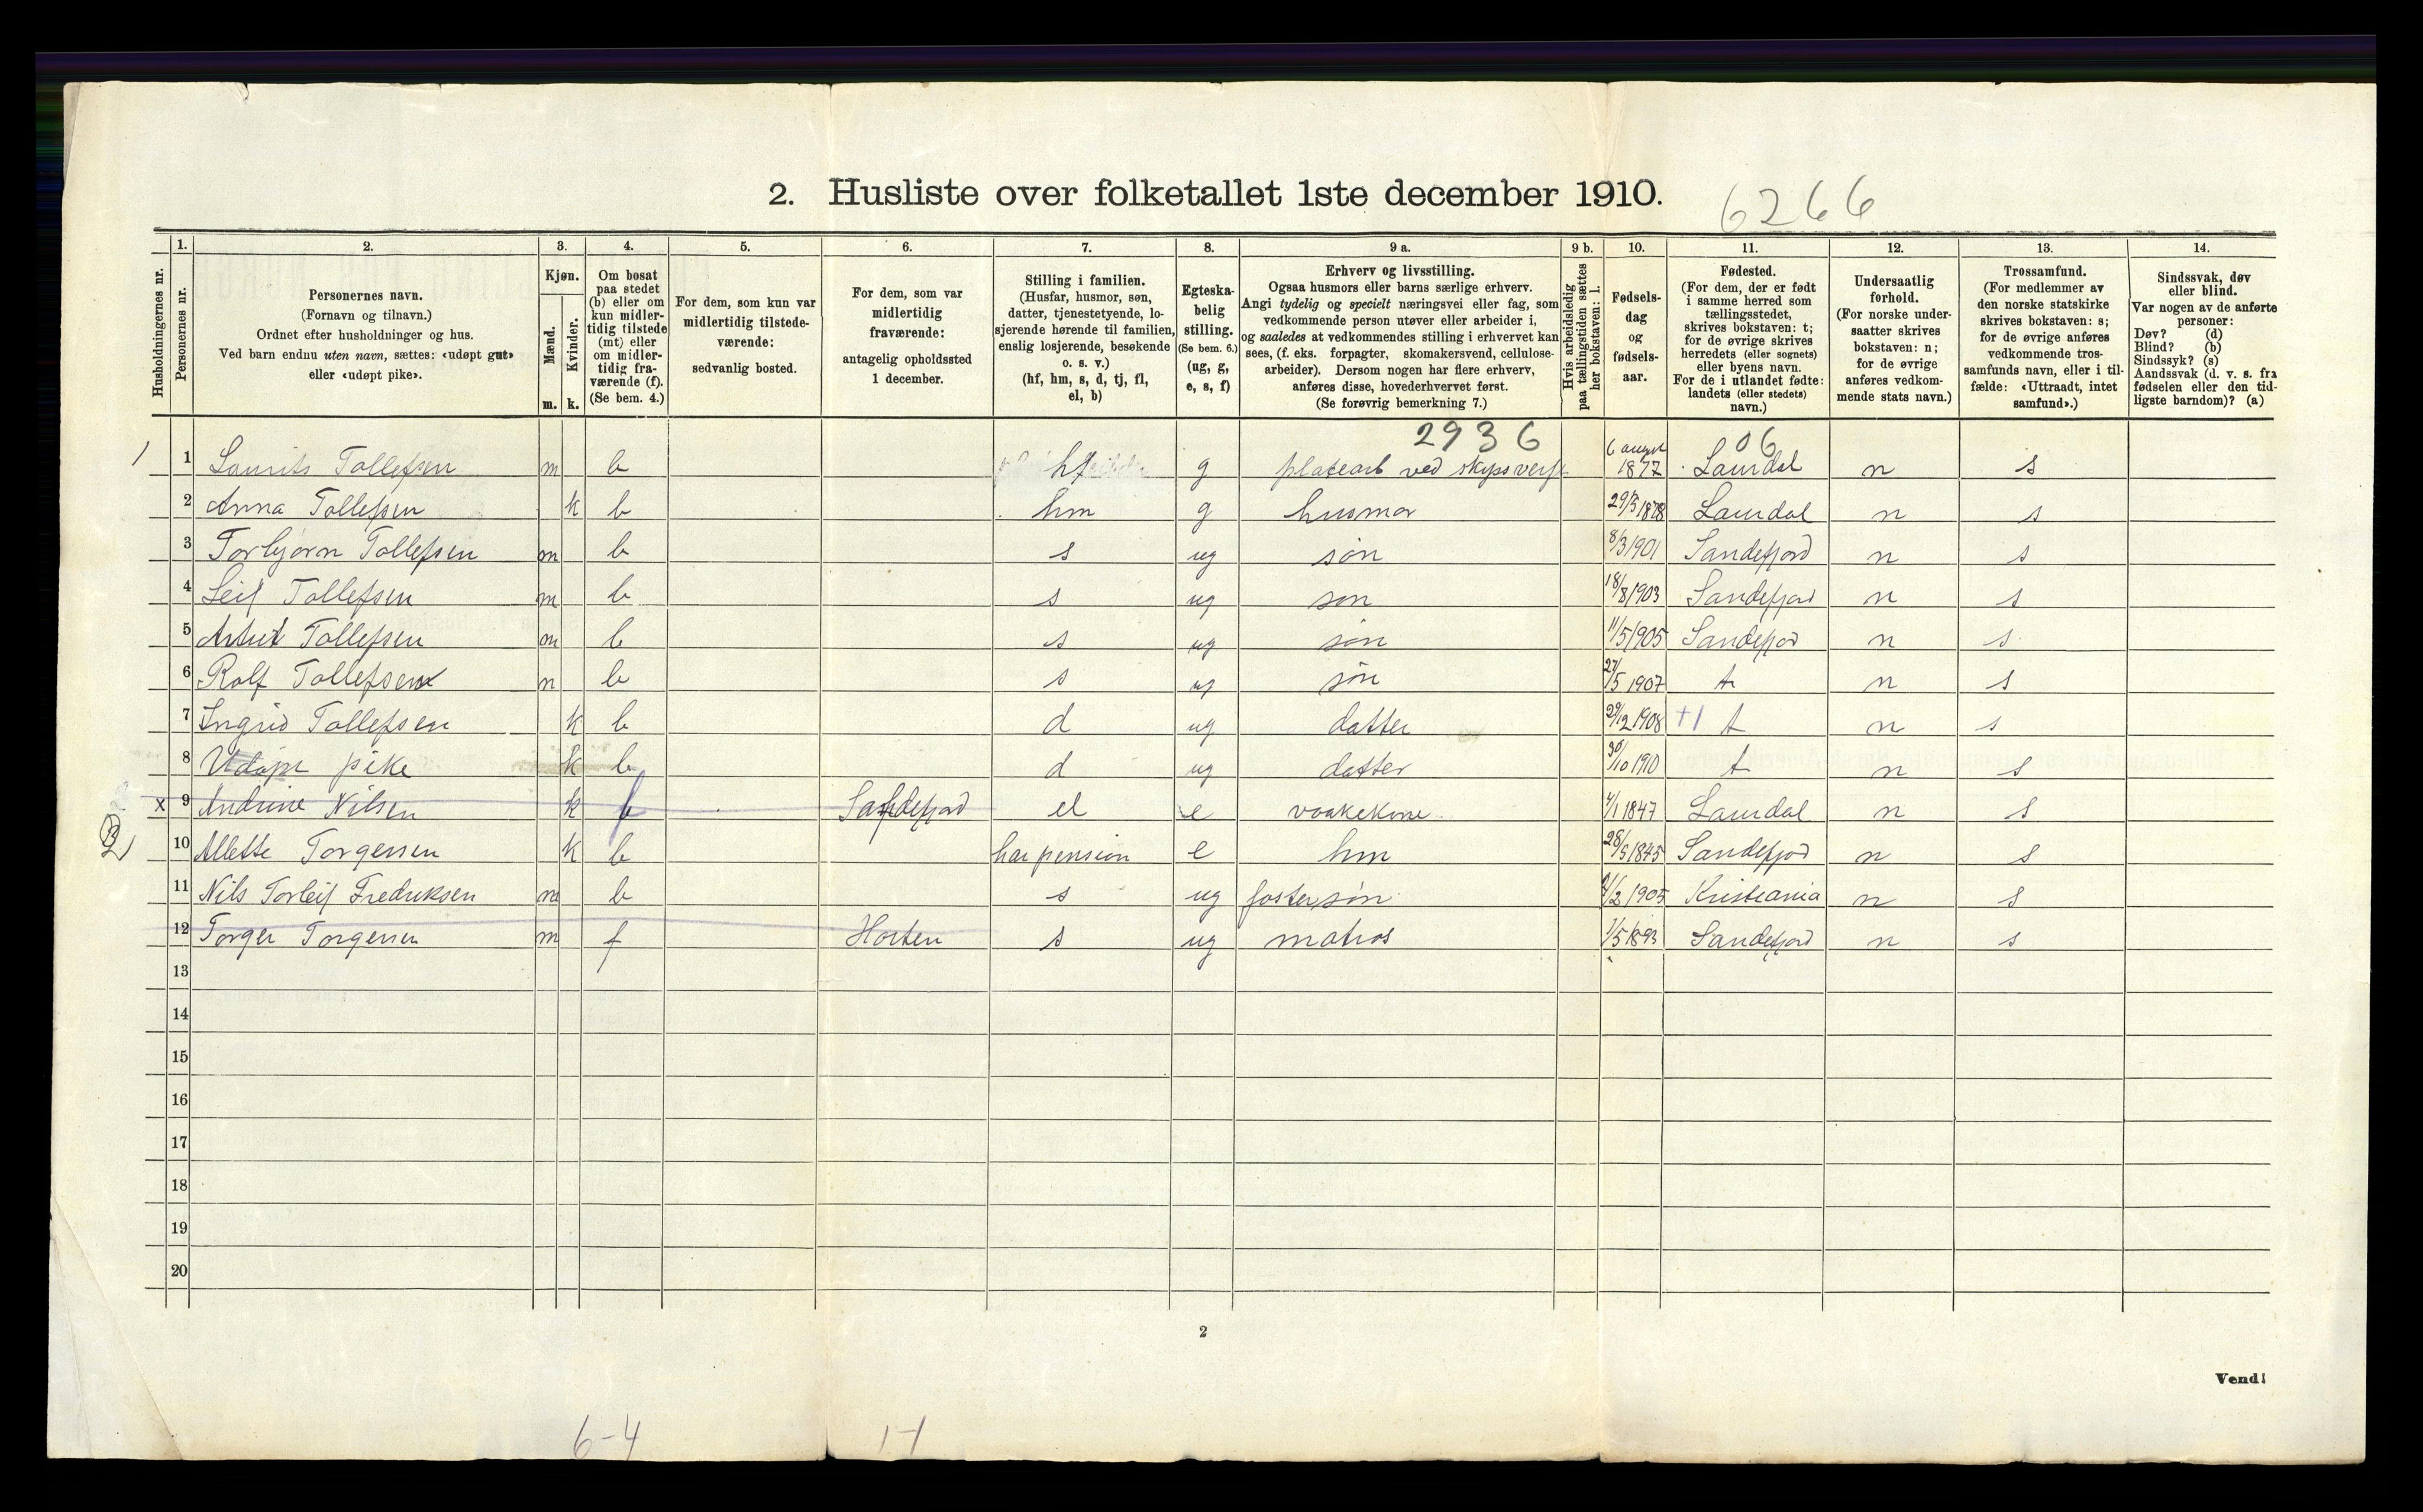 2. Husliste over folketallet 1ste december 1910.
6266
Husholdningernes nr.
1.
Personernes nr.
2.
Personernes navn.
(Fornavn og tilnavn.)
Ordnet efter husholdninger og hus.
Ved barn endnu uten navn, sættes: «udøpt gut»
eller «udøpt pike».
3.
Kjøn.
Mænd.
Kvinder.
m. k.
4.
Om bosat
paa stedet
(b) eller om
kun midler-
tidig tilstede
(mt) eller
om midler-
tidig fra-
værende (f).
(Se bem. 4.)
5.
For dem, som kun var
midlertidig tilstede-
værende:
sedvanlig bosted.
6.
For dem, som var
midlertidig
fraværende:
antagelig opholdssted
1 december.
7.
Stilling i familien.
(Husfar, husmor, søn,
datter, tjenestetyende, lo-
sjerende hørende til familien,
enslig losjerende, besøkende
o. s. v.)
(hf, hm, s, d, tj, fl,
el, b)
8.
Egteska-
belig
stilling.
(Se bem. 6.)
(ug, g,
e, s, f)
9 a.
Erhverv og livsstilling.
Ogsaa husmors eller barns særlige erhverv.
Angi tydelig og specielt næringsvei eller fag, som
vedkommende person utøver eller arbeider i,
og saaledes at vedkommendes stilling i erhvervet kan
sees, (f. eks. forpagter, skomakersvend, cellulose-
arbeider). Dersom nogen har flere erhverv,
anføres disse, hovederhvervet først.
(Se forøvrig bemerkning 7.)
9 b.
Hvis arbeidsledig
paa tællingstiden sættes
her bokstaven: l.
10.
Fødsels-
dag
og
fødsels-
aar.
11.
Fødested.
(For dem, der er født
i samme herred som
tællingsstedet,
skrives bokstaven: t;
for de øvrige skrives
herredets (eller sognets)
eller byens navn.
For de i utlandet fødte:
landets (eller stedets)
navn.)
12.
Undersaatlig
forhold.
(For norske under-
saatter skrives
bokstaven: n;
for de øvrige
anføres vedkom-
mende stats navn.)
13.
Trossamfund.
(For medlemmer av
den norske statskirke
skrives bokstaven: s;
for de øvrige anføres
vedkommende tros-
samfunds navn, eller i til-
fælde: «Uttraadt, intet
samfund».)
14.
Sindssvak, døv
eller blind.
Var nogen av de anførte
personer:
Døv? (d)
Blind? (b)
Sindssyk? (s)
Aandssvak (d. v. s. fra
fødselen eller den tid-
ligste barndom)? (a)
2936 06
1 1 Laurits Tollefsen m b hf g platearb ved skipsverft 6 august 1877 Laurdal n s
2 Anna Tollefsen k b hm g husmor 29/5 1878 Laurdal n s
3 Torbjørn Tollefsen m b s ug søn 8/3 1901 Sandefjord n s
4 Leif Tollefsen m b s ug søn 18/8 1903 Sandefjord n s
5 Tollefsen m b s ug søn 11/5 1905 Sandefjord n s
6 Rolf Tollefsen n b s ug søn 27/5 1907 t n s
7 Ingrid Tollefsen k b d ug datter 29/12 1908 +1 t n s
8 Udøpt pike k b d ug datter 30/10 1910 t n s
x 9 Andrine Nilsen k f Sandefjord el e vaakekone 4/1 1847 Laurdal n s
2 10 Allette Torgersen k b har pension e hm 28/5 1845 Sandefjord n s
11 Nils Torleif Fredriksen m b s ug fostersøn /2 1905 Kristiania n s
12 Torger Torgersen m f Horten s ug matros 1/5 1893 Sandefjord n s
13
14
15
16
17
18
19
20
2
Vend!
6-4 1-1